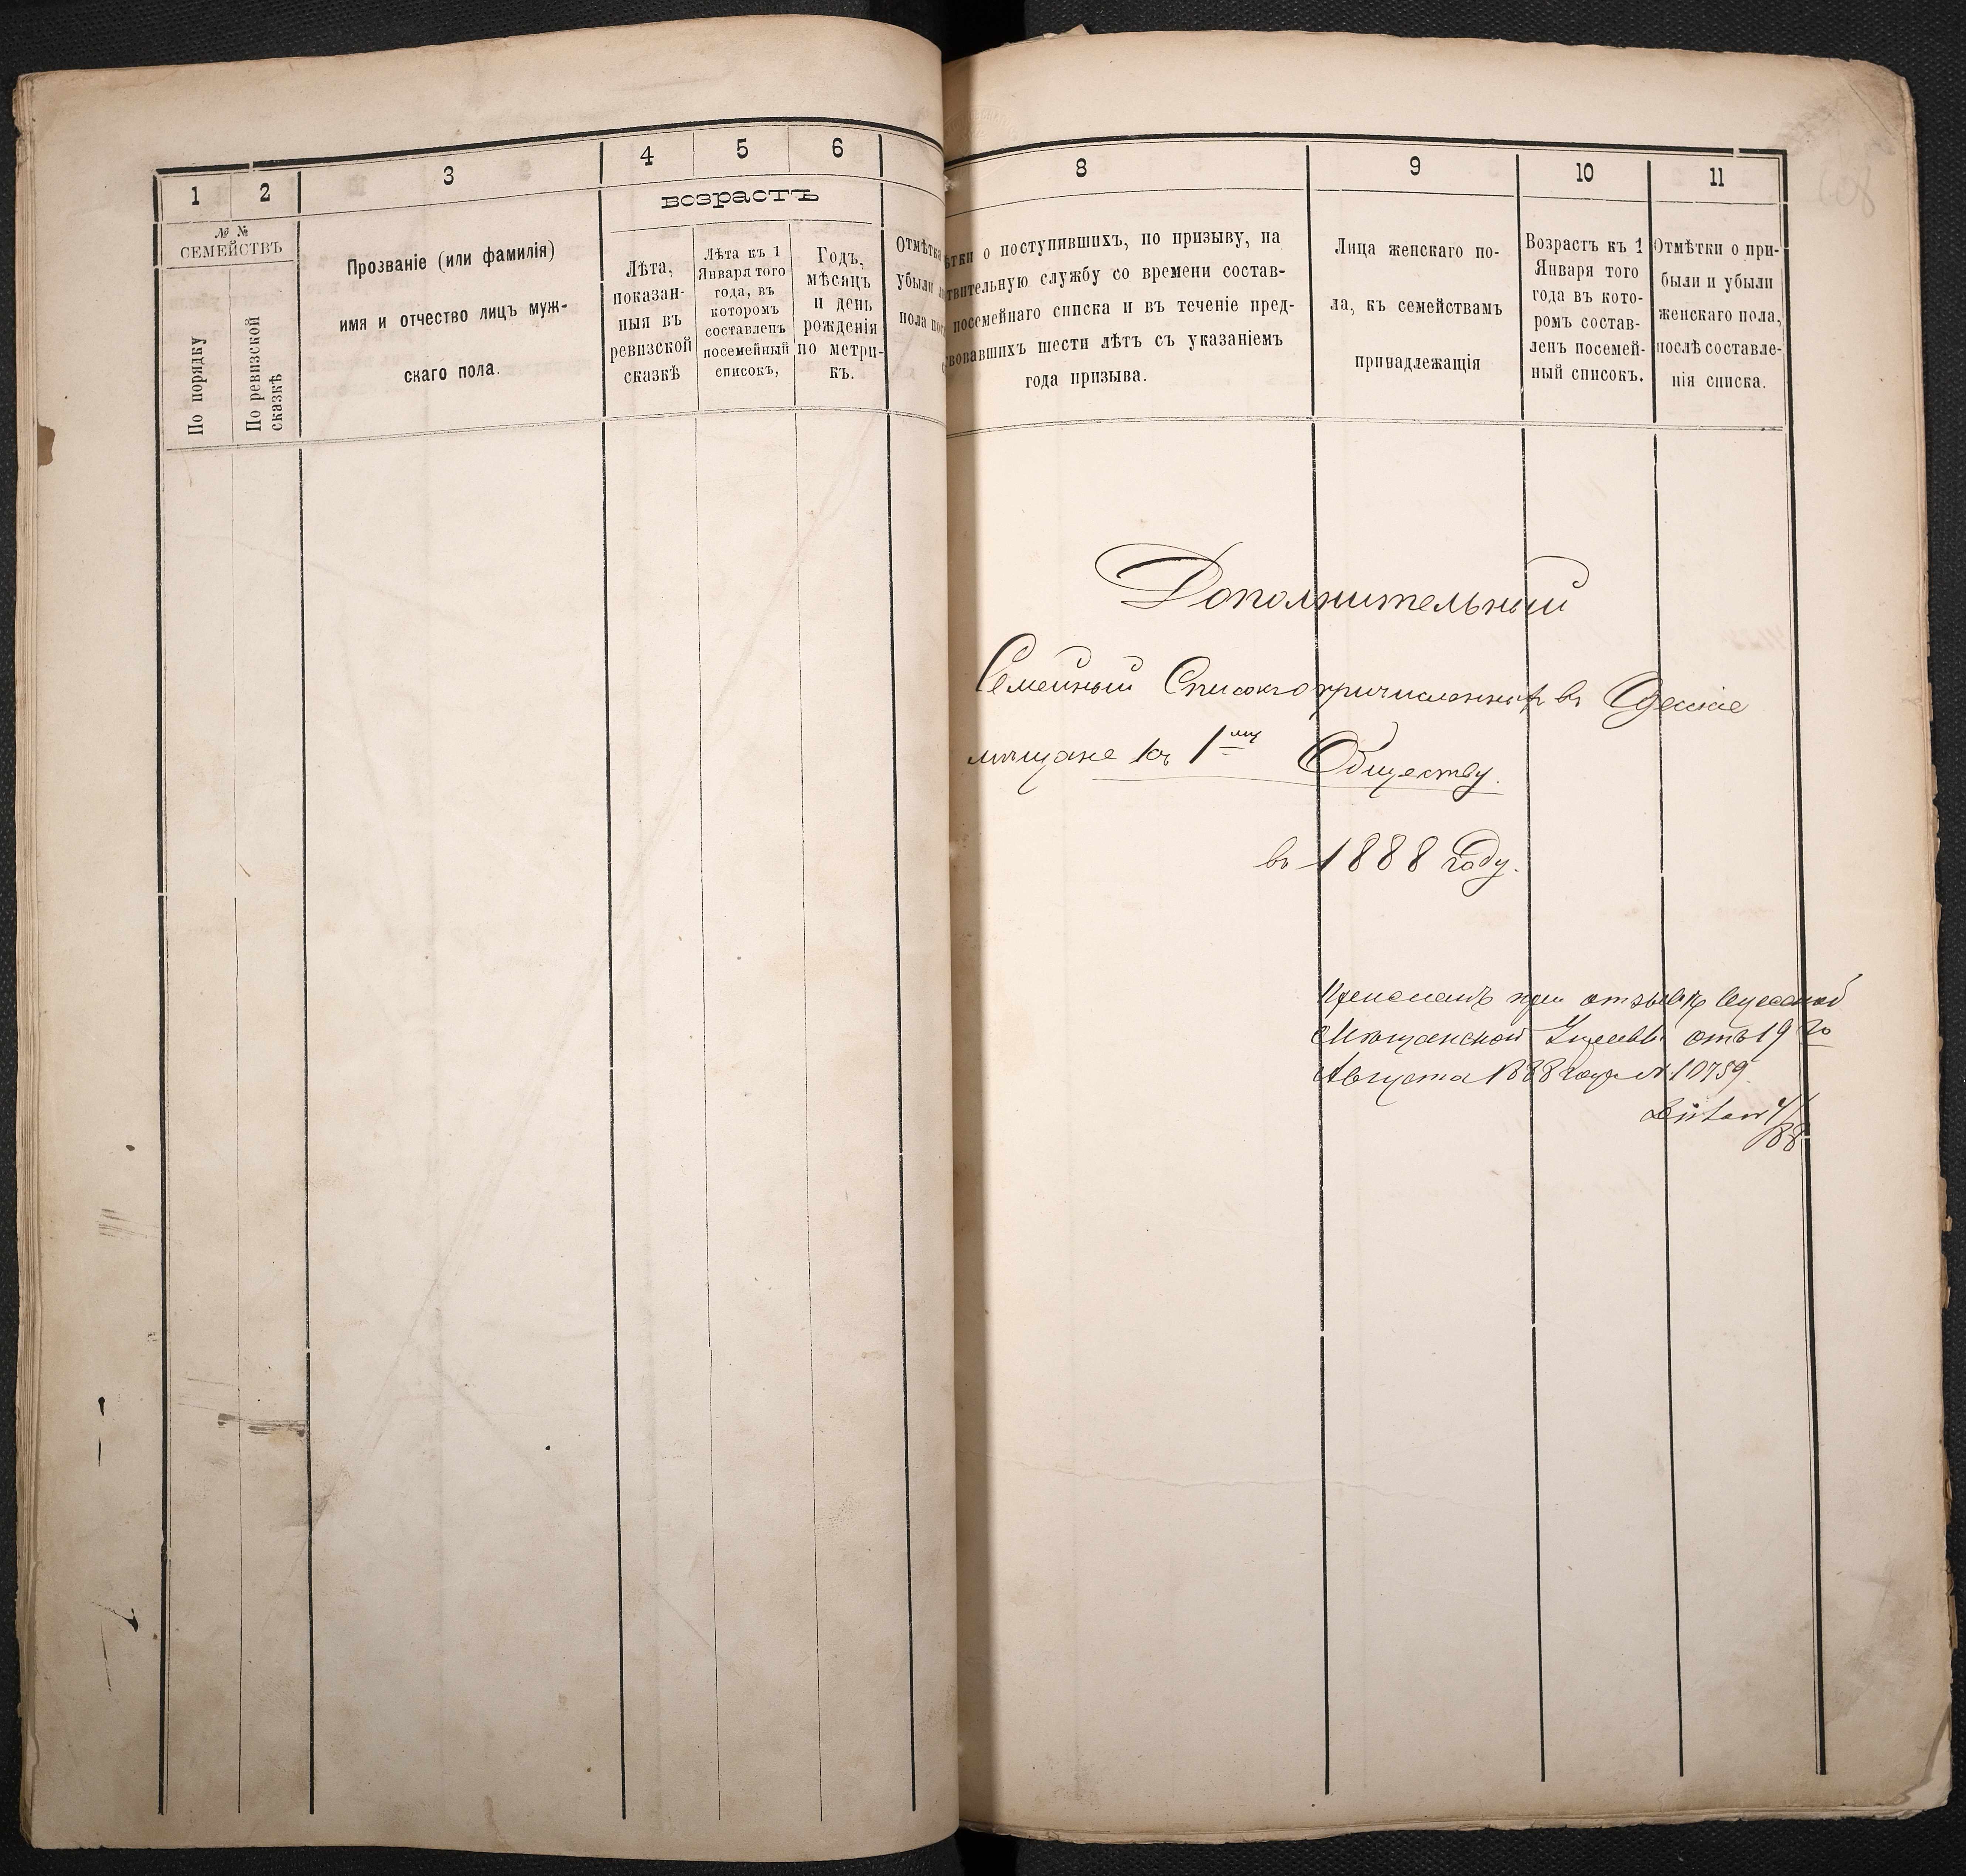 1
2
3
4
5
6
возрастъ
№ №
СЕМЕЙСТВЪ
По порядку
По ревизской
сказкѣ
Прозваніе (или фамилія)
имя и отчество лицъ муж-
скаго пола.
Лѣта,
показан-
ныя въ
ревизской
сказкѣ
Лѣта къ 1
Января того
года, въ
которомъ
составленъ
посемейный
списокъ,
Годъ,
мѣсяцъ
и день
рожденія
по метри-
къ.
Отмѣтка
убыли
пола
8
9
10
11
о поступившихъ, по призыву, на
твительную службу со времени состав-
посемейнаго списка и въ теченіе пред-
вовавшихъ шести лѣтъ съ указаніемъ
года призыва.
Лица женскаго по-
ла, къ семействамъ
принадлежащія
Возрастъ къ 1
Января того
года въ кото-
ромъ состав-
ленъ посемей-
ный списокъ.
Отмѣтки о при-
были и убыли
женскаго пола,
послѣ составле-
нія списка.
Дополнительный
Семейный Списокъ о причисленныхъ въ Одесскіе
мѣщане къ 1му Обществу.
въ 1888 году.
при отзывѣ Одесской
Мѣщанской Управы отъ 19го
Августа 1888 года № 10759
88